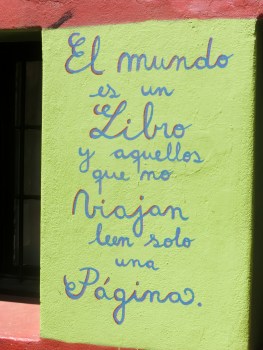 El mundo
es un
Libro
y aquellos
que no
Viajan
leen solo
una
Página.